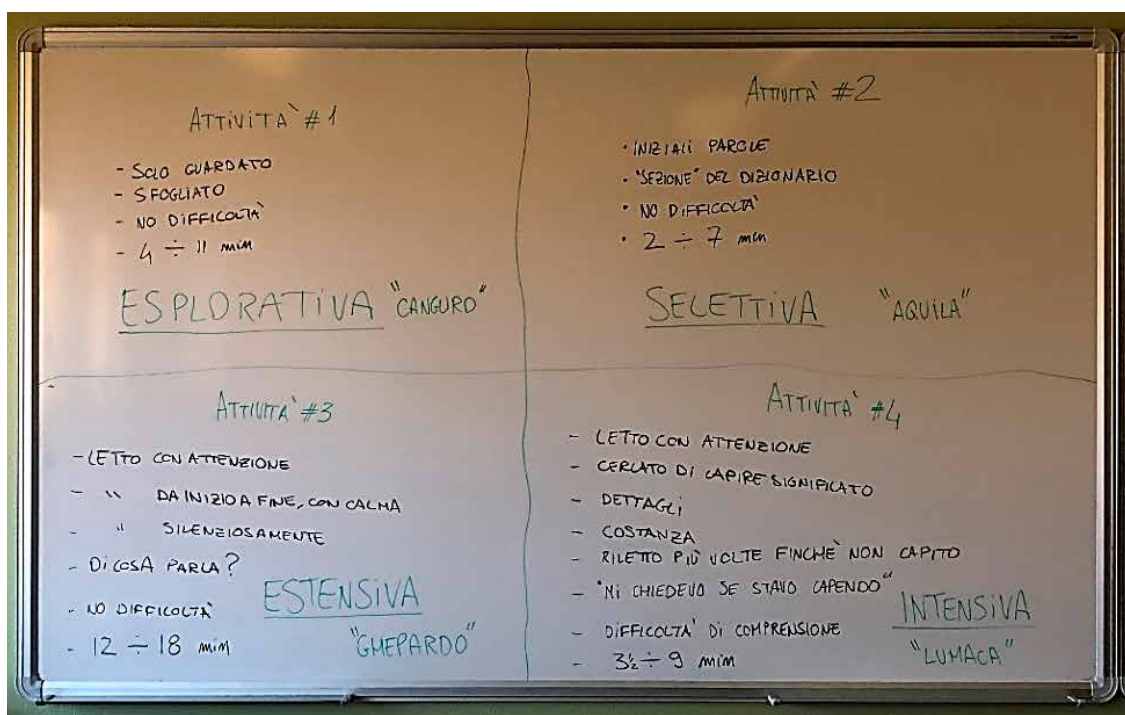 ATTIVITÀ #1
- SOLO GUARDATO
- SFOGLIATO
- NO DIFFICOLTÀ
- 4 ÷ 11 min
ESPLORATIVA "CANGURO"
ATTIVITÀ #2
• INIZIALI PAROLE
• "SEZIONE" DEL DIZIONARIO
• NO DIFFICOLTÀ
• 2 ÷ 7 min
SELETTIVA "AQUILA"
ATTIVITÀ #3
- LETTO CON ATTENZIONE
- " DA INIZIO A FINE, CON CALMA
- " SILENZIOSAMENTE
- DI COSA PARLA?
- NO DIFFICOLTÀ
- 12 ÷ 18 min
ESTENSIVA
"GHEPARDO"
ATTIVITÀ #4
- LETTO CON ATTENZIONE
- CERCATO DI CAPIRE SIGNIFICATO
- DETTAGLI
- COSTANZA
- RILETTO PIÙ VOLTE FINCHÈ NON CAPITO
- "MI CHIEDEVO SE STAVO CAPENDO"
- DIFFICOLTÀ DI COMPRENSIONE
- 3½ ÷ 9 min
INTENSIVA
"LUMACA"